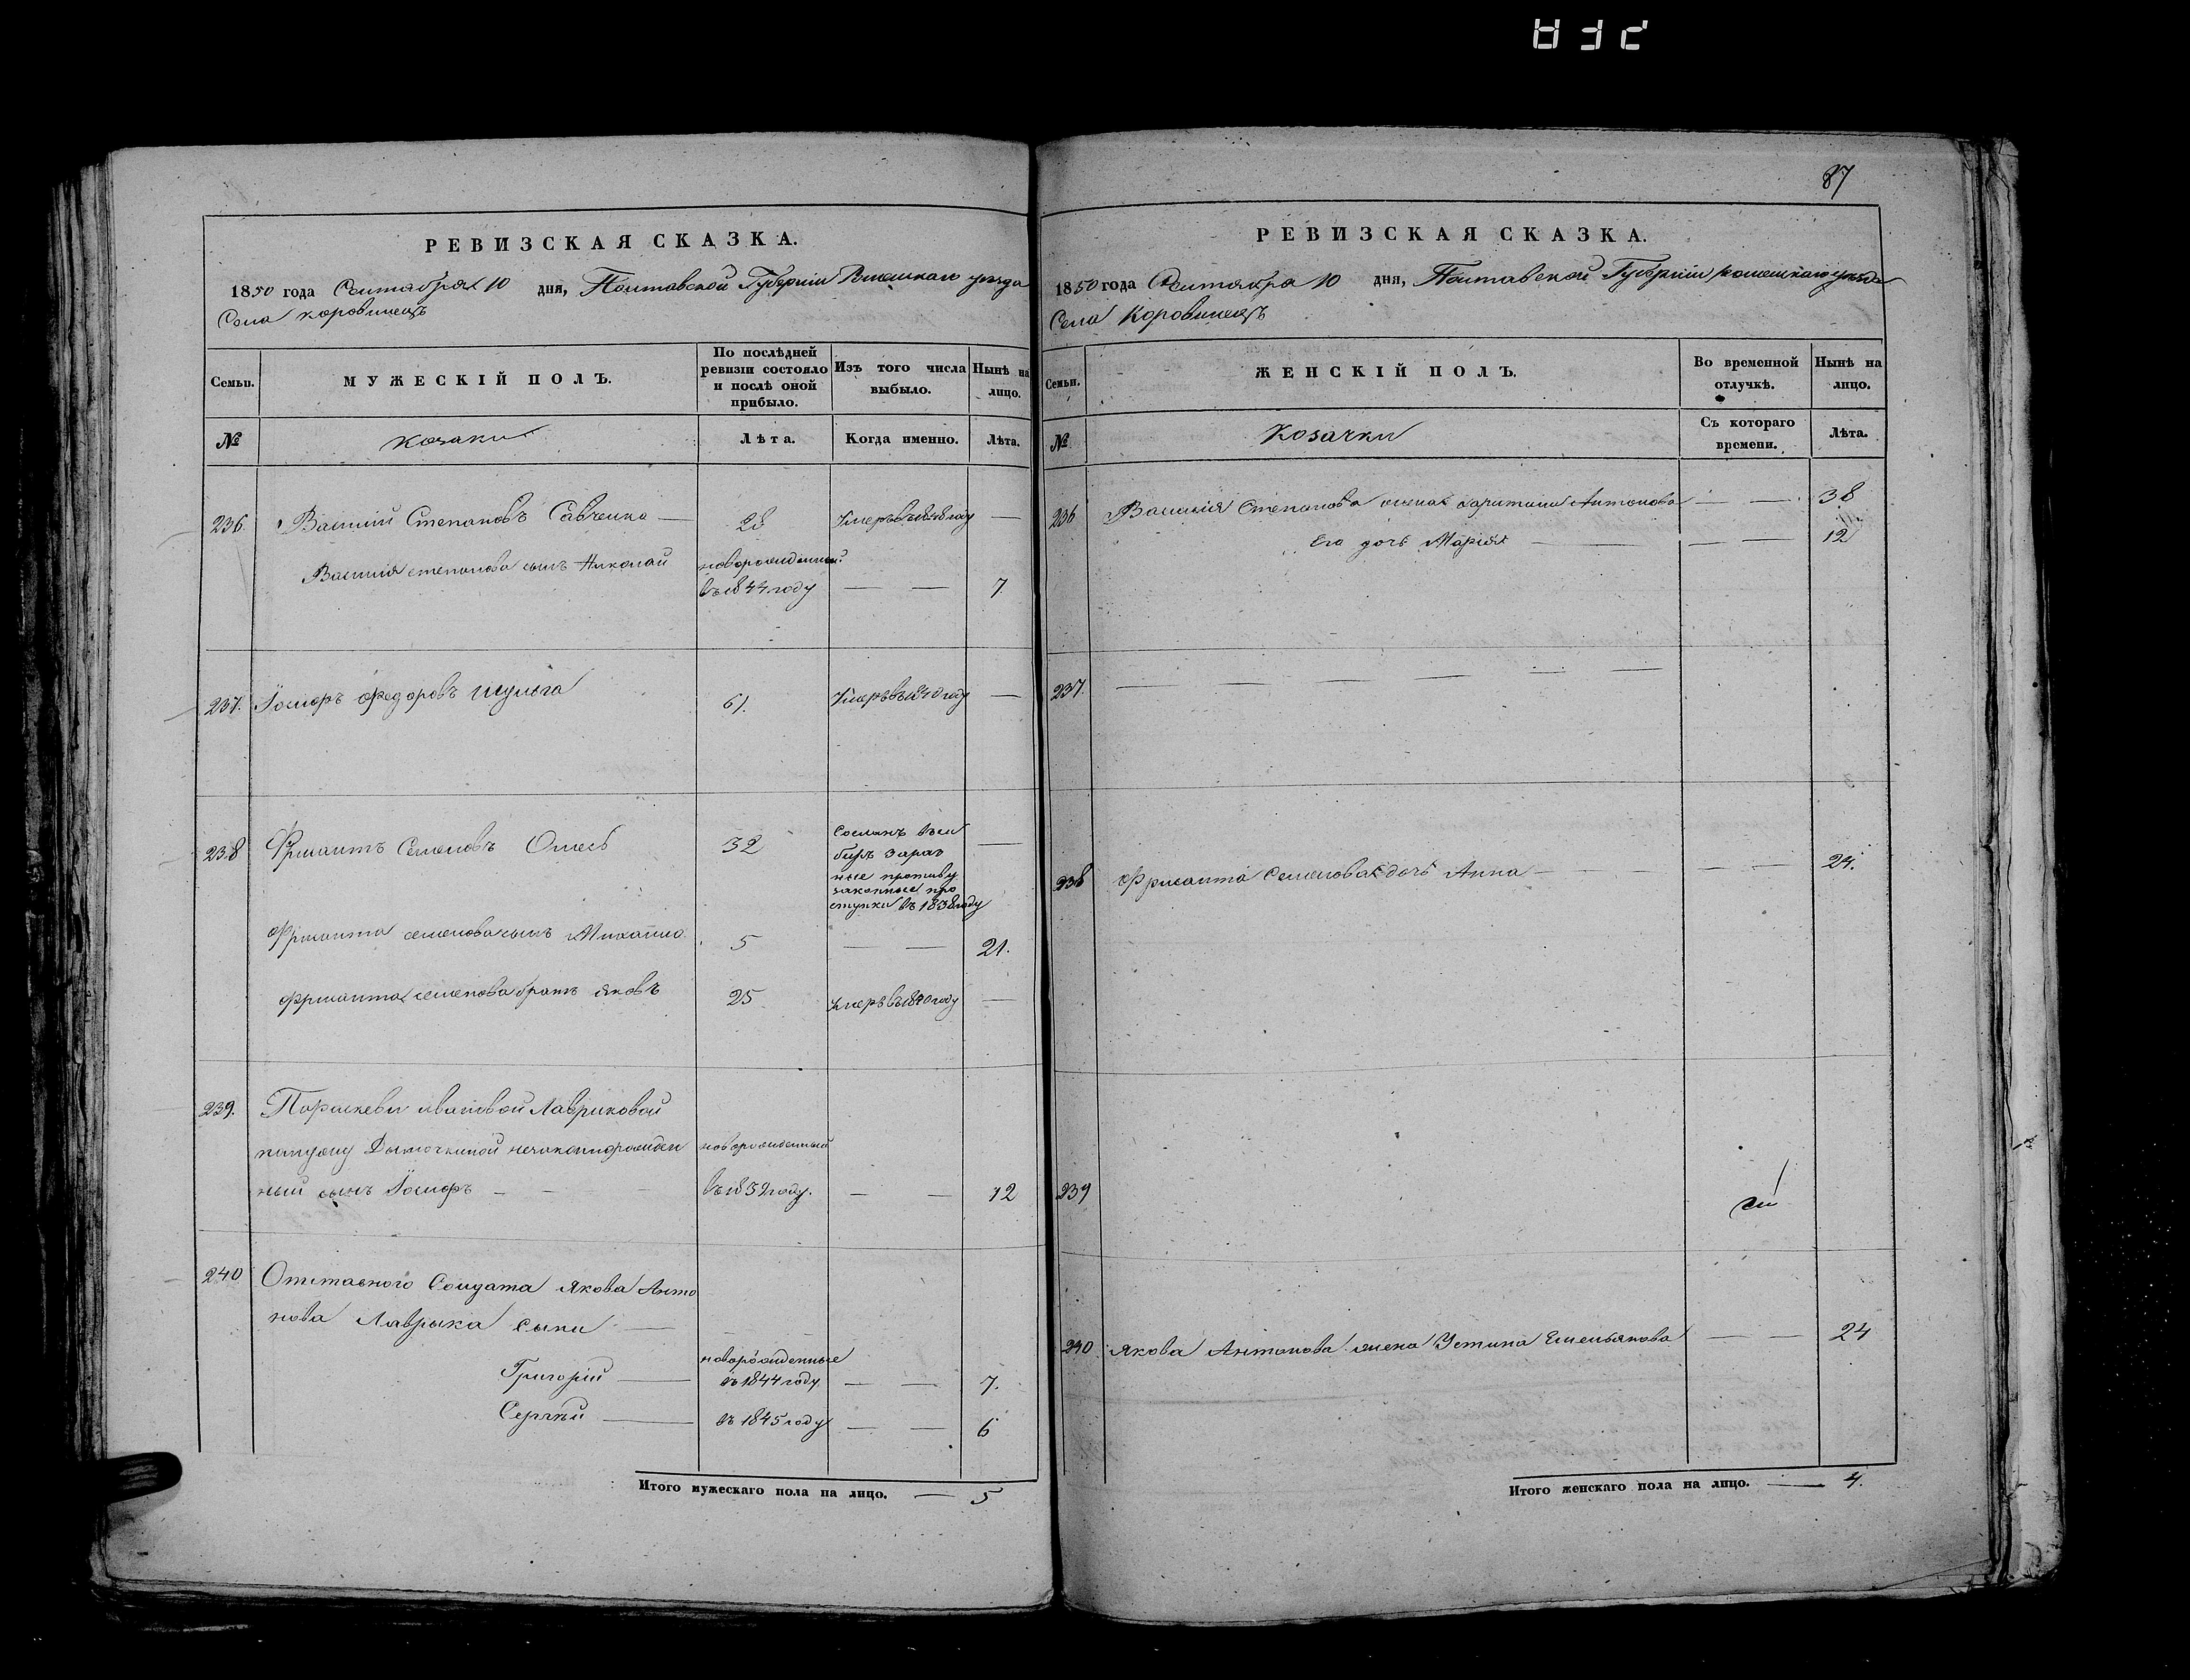 87
РЕВИЗСКАЯ СКАЗКА.
1850 года Сентября 10 дня, Полтавской Губернии Роменскаго уезда
Села Коровинецъ
Семьи.
МУЖЕСКІЙ ПОЛЪ.
По послѣдней ревизіи состояло и послѣ оной прибыло.
Изъ того числа выбыло.
Нынѣ на лицо.
№
Козаки
Лѣта.
Когда именно.
Лѣта.
236. Василий Степановъ Савченко — 28 Умеръ въ 1848 году —
Василия Степанова сынъ Николай новорожденный
въ 1844 году — — 7.
237. Іосифъ Федоровъ Шульга 61. Умеръ въ 1840 году —
238 Семеновъ 32 Сосланъ въ Си
биръ за раз
ные противу
законные про
ступки въ 1838 году —
Семенова сынъ Михайло. 5 — — 21.
Семенова братъ Яковъ 25 Умеръ въ 1840 году —
239. Параскевы Ивановой Лавриковой
незаконнорожден новорожденный
ный сынъ Іосифъ — — въ 1839 году. — — 12
240 Отставного Солдата Якова Анто
нова Лаврыка сыны —
новорожденные
Григорій — въ 1844 году — — 7.
Сергѣй — въ 1845 году — — 6
Итого мужескаго пола на лицо. — 5
РЕВИЗСКАЯ СКАЗКА.
1850 года Сентября 10 дня, Полтавской Губернии Роменскаго уезда
Села Коровинецъ
Семьи.
ЖЕНСКІЙ ПОЛЪ.
Во временной отлучкѣ.
Нынѣ на лицо.
№
Козачки
Съ котораго времени.
Лѣта.
236 Василия Степанова жена Харитина Антонова — — 38
Его дочь Марія — — — 12
237. — — — — — —
238 Семенова дочь Анна — — — 24.
239
240. Якова Антонова жена Устина Емельянова — — 24
Итого женскаго пола на лицо. — 4.